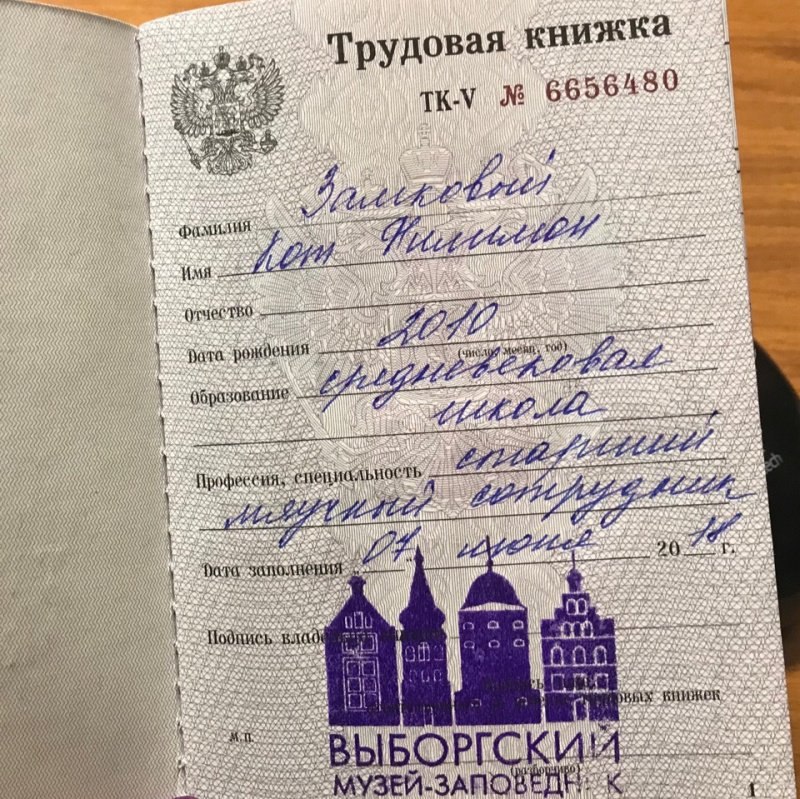 Трудовая книжка
ТК-V № 6656480
Фамилия Замковый
Имя Кот Филимон
Отчество
Дата рождения 2010
(число, месяц, год)
Образование средневековая
школа
Профессия, специальность старший
мяучный сотрудник
Дата заполнения 07 июня 2018 г.
Подпись владельца
трудовых книжек
М.П.
ВЫБОРГСКИЙ
(разборчиво)
МУЗЕЙ-ЗАПОВЕДНИК
1